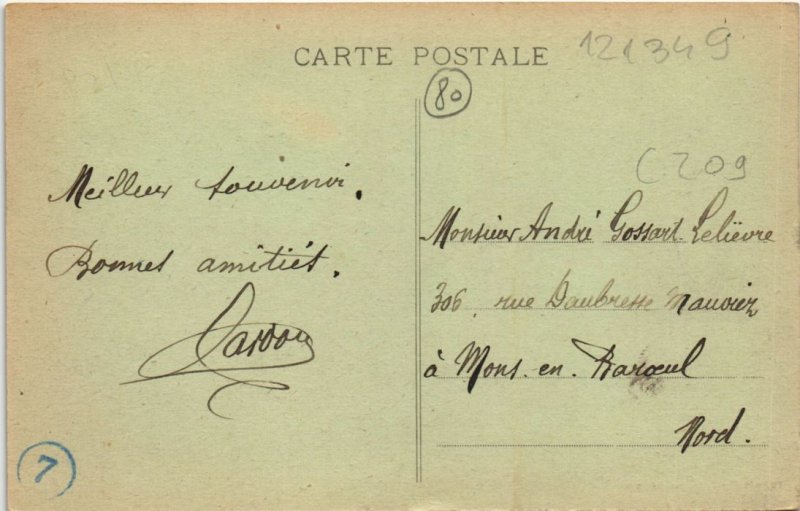 CARTE POSTALE
121349
80
C209
Meilleur souvenir.
Bonnes amitiés.
Monsieur André Gossart-Lelièvre
306, rue Daubresse Mauviez
à Mons. en. Barœul
Nord.
7